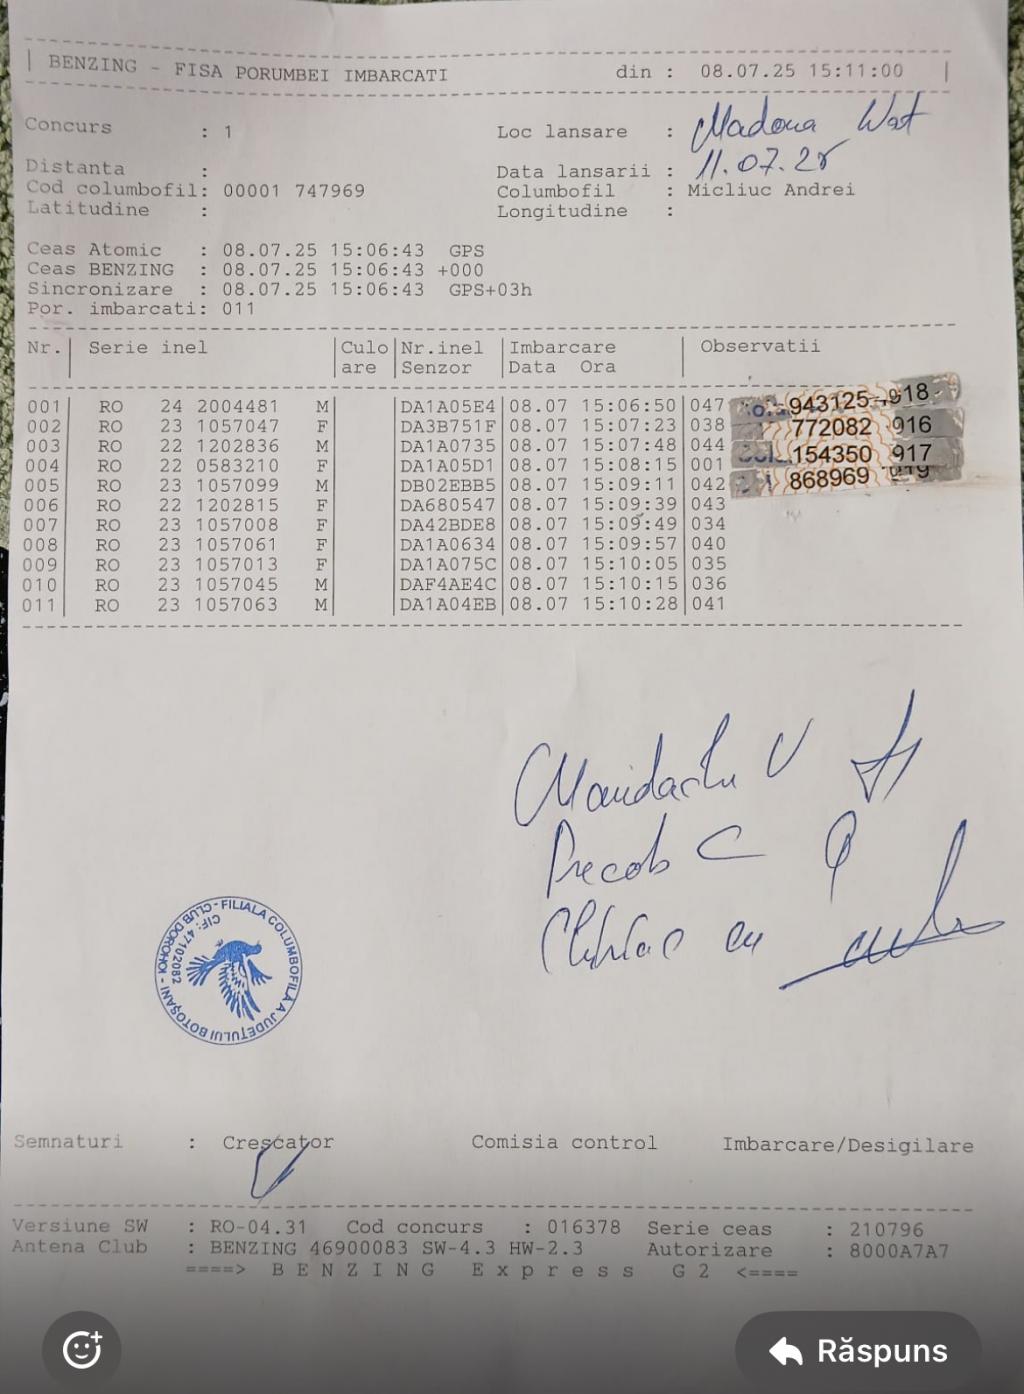 | BENZING - FISA PORUMBEI IMBARCATI din : 08.07.25 15:11:00 |
Concurs : 1 Loc lansare : Madona
Distanta : Data lansarii : 11.07.25
Cod columbofil: 00001 747969 Columbofil : Micliuc Andrei
Latitudine : Longitudine :
Ceas Atomic : 08.07.25 15:06:43 GPS
Ceas BENZING : 08.07.25 15:06:43 +000
Sincronizare : 08.07.25 15:06:43 GPS+03h
Por. imbarcati: 011
Nr.| Serie inel |Culo|Nr.inel |Imbarcare | Observatii
|are |Senzor |Data Ora |
001| RO 24 2004481 M| |DA1A05E4|08.07 15:06:50|047 943125 918
002| RO 23 1057047 F| |DA3B751F|08.07 15:07:23|038 772082 916
003| RO 22 1202836 M| |DA1A0735|08.07 15:07:48|044 154350 917
004| RO 22 0583210 F| |DA1A05D1|08.07 15:08:15|001 868969
005| RO 23 1057099 M| |DB02EBB5|08.07 15:09:11|042
006| RO 22 1202815 F| |DA680547|08.07 15:09:39|043
007| RO 23 1057008 F| |DA42BDE8|08.07 15:09:49|034
008| RO 23 1057061 F| |DA1A0634|08.07 15:09:57|040
009| RO 23 1057013 F| |DA1A075C|08.07 15:10:05|035
010| RO 23 1057045 M| |DAF4AE4C|08.07 15:10:15|036
011| RO 23 1057063 M| |DA1A04EB|08.07 15:10:28|041
Precob C
FILIALA COLUMBOFILA A JUDEȚULUI BOTOȘANI - CLUB DOROHOI -
CIF: 47102082
Semnaturi : Crescator Comisia control Imbarcare/Desigilare
Versiune SW : RO-04.31 Cod concurs : 016378 Serie ceas : 210796
Antena Club : BENZING 46900083 SW-4.3 HW-2.3 Autorizare : 8000A7A7
====> B E N Z I N G E x p r e s s G 2 <====
Răspuns